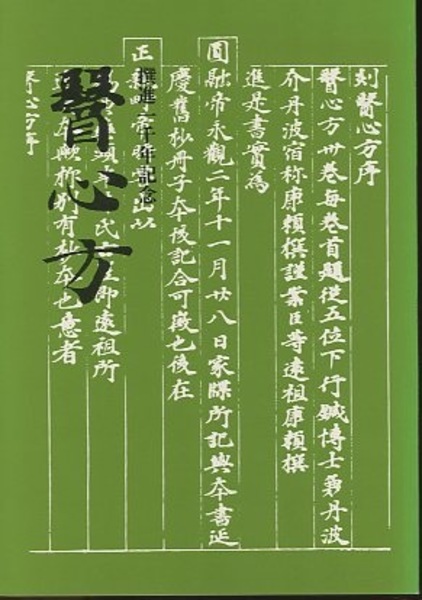 刻醫心方序
醫心方卅卷每卷首題從五位下行鍼博士兼丹波
介丹波宿祢康頼撰謹案臣等遠祖康頼撰
進是書實為
圓融帝永觀二年十一月廿八日家牒所記與本書延
慶舊抄冊子本後記合可徴也後在
撰進一千年記念
正親町帝時出以
氏即遠祖所
醫心方
本歟称別有本也意者
心方序